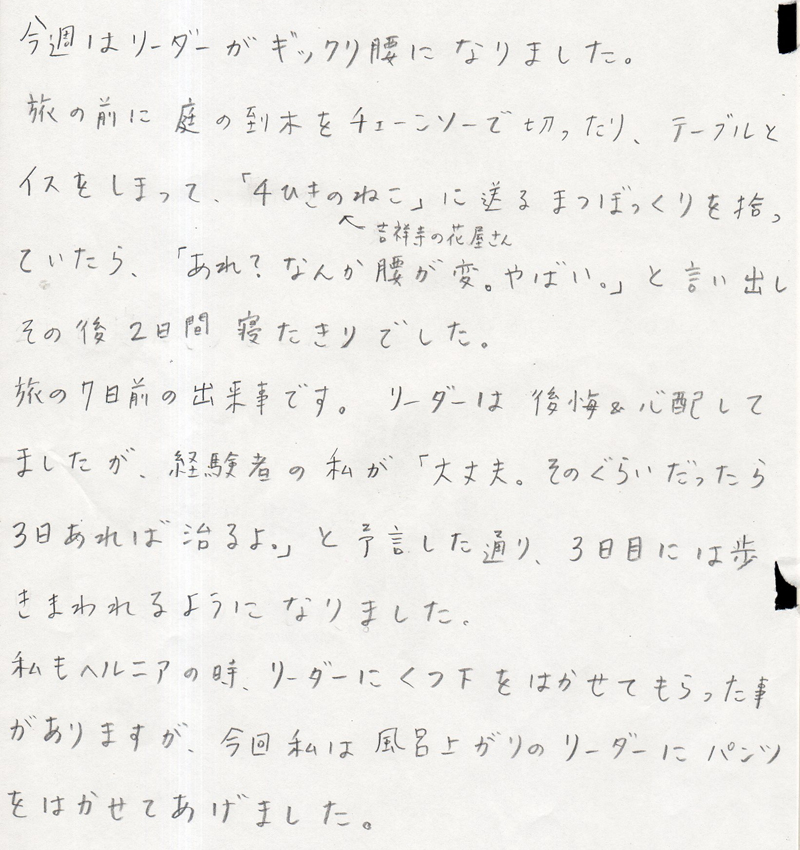 今週はリーダーがギックリ腰になりました。
旅の前に庭の到木をチェーンソーで切ったり、テーブルと
イスをしまって、「4ひきのねこ」に送るまつぼっくりを拾っ
↖吉祥寺の花屋さん
ていたら、「あれ？なんか腰が変。やばい。」と言い出し
その後2日間寝たきりでした。
旅の7日前の出来事です。リーダーは後悔&心配して
ましたが、経験者の私が「大丈夫。そのぐらいだったら
3日あれば治るよ。」と予言した通り、3日目には歩
きまわれるようになりました。
私もヘルニアの時、リーダーにくつ下をはかせてもらった事
がありますが、今回私は風呂上がりのリーダーにパンツ
をはかせてあげました。